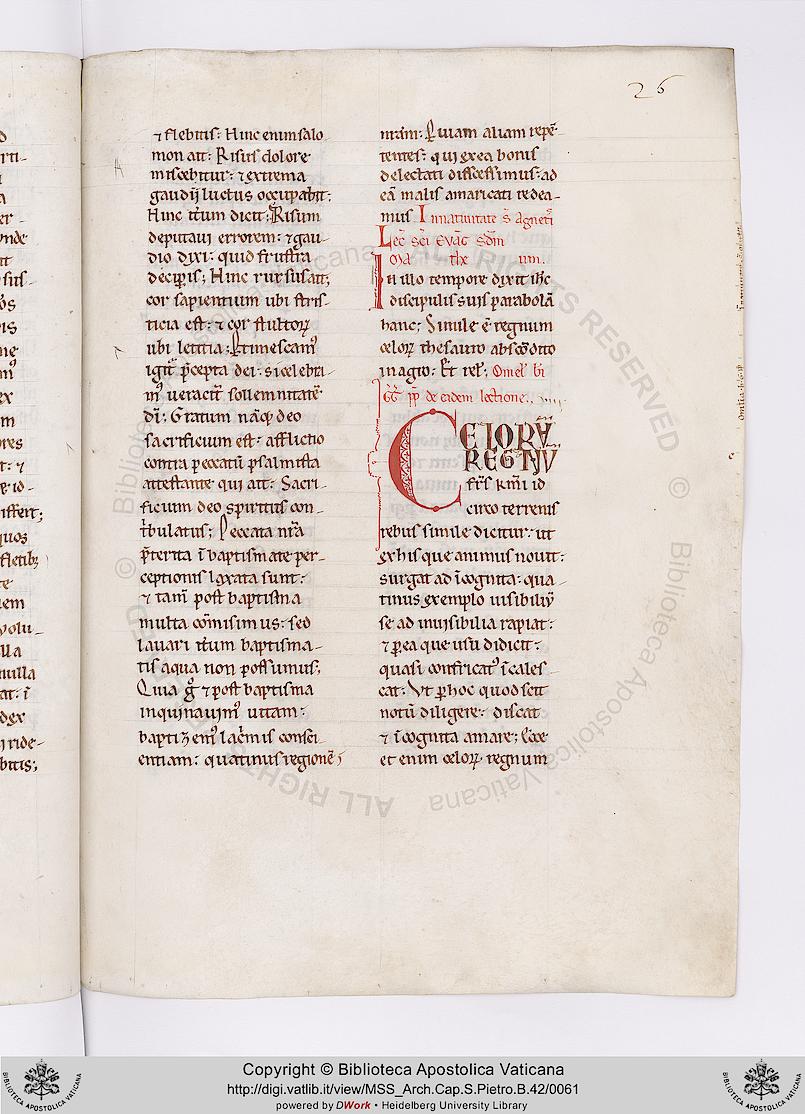 26
⁊ flebitis: Hinc enim salo
mon ait: Risus dolore
miscebitur: ⁊ extrema
gaudii luctus occupabit:
Hinc itũm dicit: Risum
deputaui errorem: ⁊ gau-
dio dixi: quid frustra
deciperis; Hinc rursus ait;
cor sapientium ubi tris-
ticia est: ⁊ cor stultoꝝ
ubi letitia; Ptimescam᷒
igit᷒ p̄cepta dei: si celebra-
m᷒ ueracit̃ sollemnitatẽ
dĩ: Gratum nãq; deo
sacrificium est: afflictio
contra peccatũ psalmista
attestante qui ait: Sacri-
ficium deo spiritus con-
t̃bulatus; Peccata nr̃a
p̃terita ĩ baptismate per-
ceptionis laxata sunt:
⁊ tam̃ post baptisma
multa cõmisimus: sed
lauari itũm baptisma-
tis aqua non possumus;
Quia g̃ ⁊ post baptisma
inquinauim᷒ uitam:
baptizem᷒ lac̃mis consci-
entiam: quatinus regionẽ
nr̃am: Quiam aliam repẽ-
tentes: qui ex ea bonis
delectati discessimus: ad
eã malis amaricati redea-
mus In natiuitate s̃ Agneti᷒
Lec̃ sc̃i eváḡ sc̃dm
Ma the um.
In illo tempore dixit ihc
discipulis suis parabolã
hanc; Simile ẽ regnum
celoꝝ thesauro abscõdito
in agro; Et rel̃; Omel̃ bi
GG̃ pp̃ de eadem lectione.
CELORṼ
REGNṼ
fr̃s km̃i id
circo terrenis
rebus simile dicitur: ut
ex his que animus nouit:
surgat ad ĩcognita: qua-
tinus exemplo uisibiliũ
se ad inuisibilia rapiat:
⁊ p ea que usu didicit:
quasi confricat᷒ ĩcales-
cat: Vt p hoc quod scit
notũ diligere: discat
⁊ ĩcognita amare; Ecce
et enim celoꝝ regnum
© Biblioteca Apostolica Vaticana ALL RIGHTS RESERVED
Copyright © Biblioteca Apostolica Vaticana
http://digi.vatlib.it/view/MSS_Arch.Cap.S.Pietro.B.42/0061
powered by DWork • Heidelberg University Library